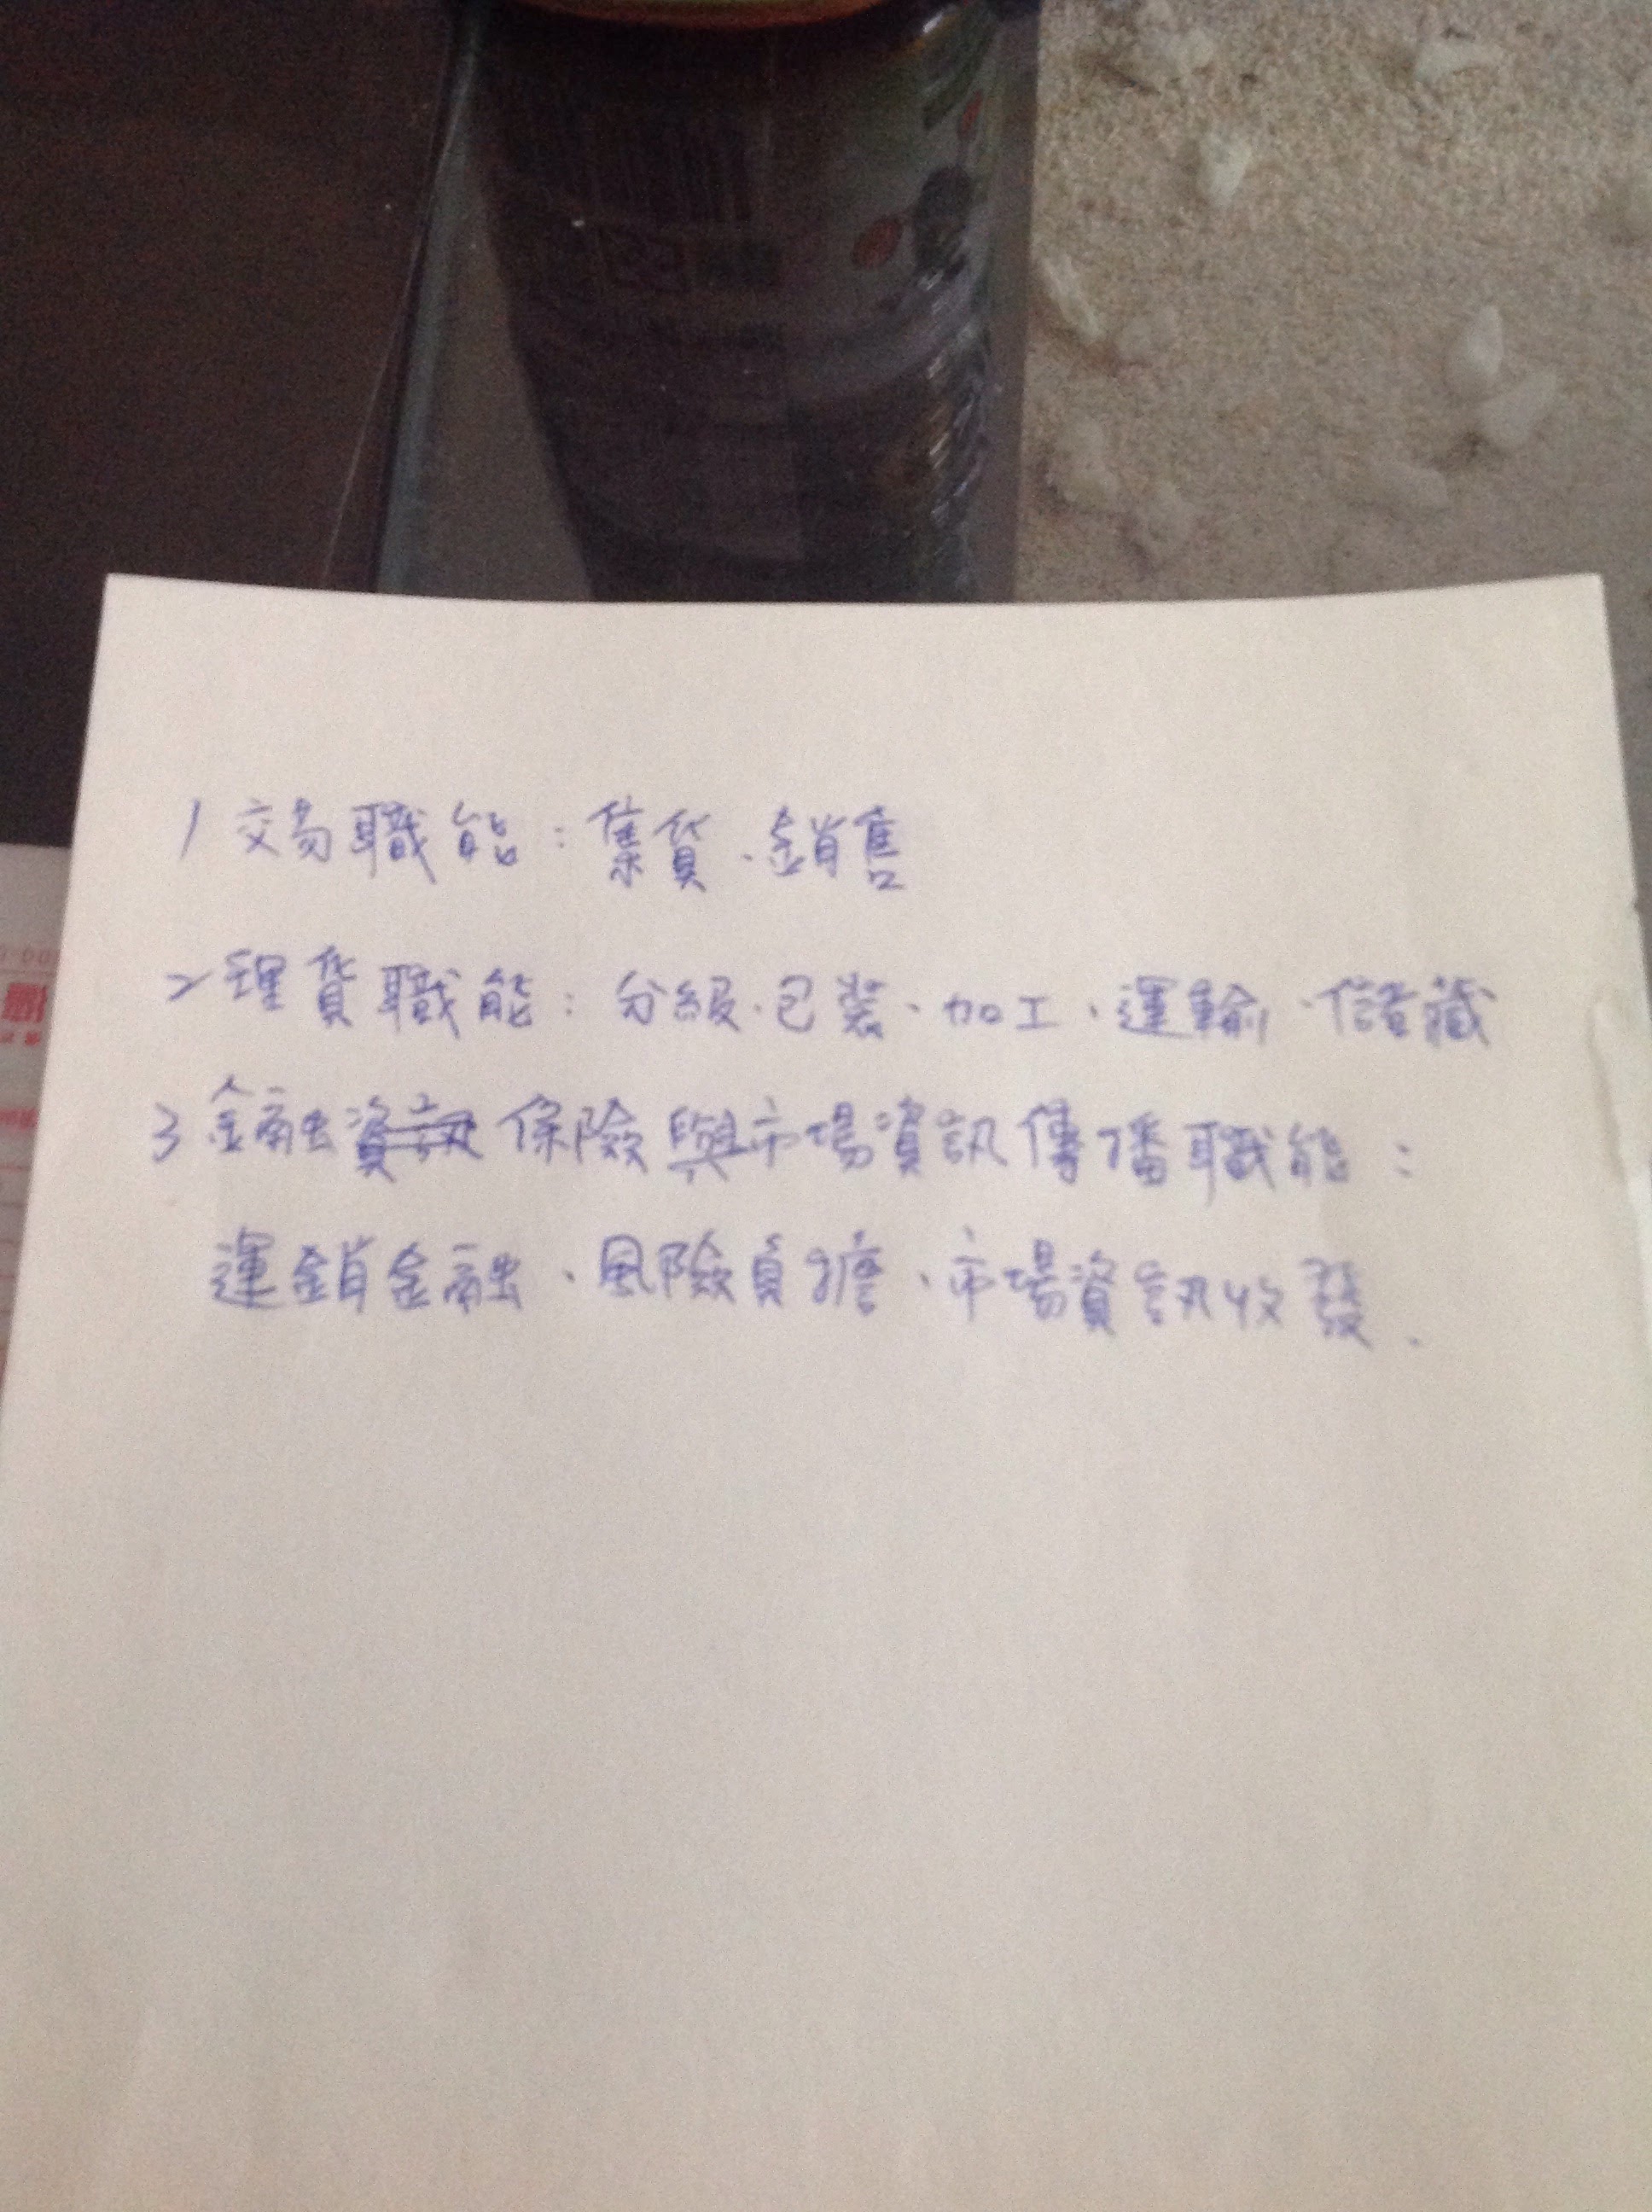 1 交易職能：集貨、銷售
2 理貨職能：分級、包裝、加工、運輸、儲藏
3 金融保險與市場資訊傳播職能：
運銷金融、風險負擔、市場資訊收發.